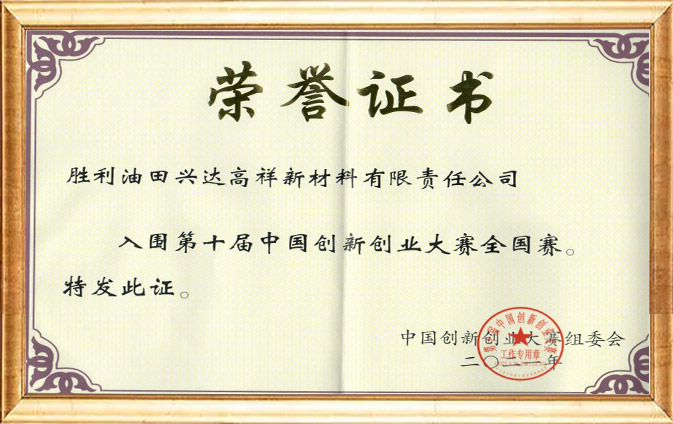 荣誉证书
胜利油田兴达高祥新材料有限责任公司
入围第十届中国创新创业大赛全国赛。
特发此证。
中国创新创业大赛组委会
二〇二 年
工作专用章